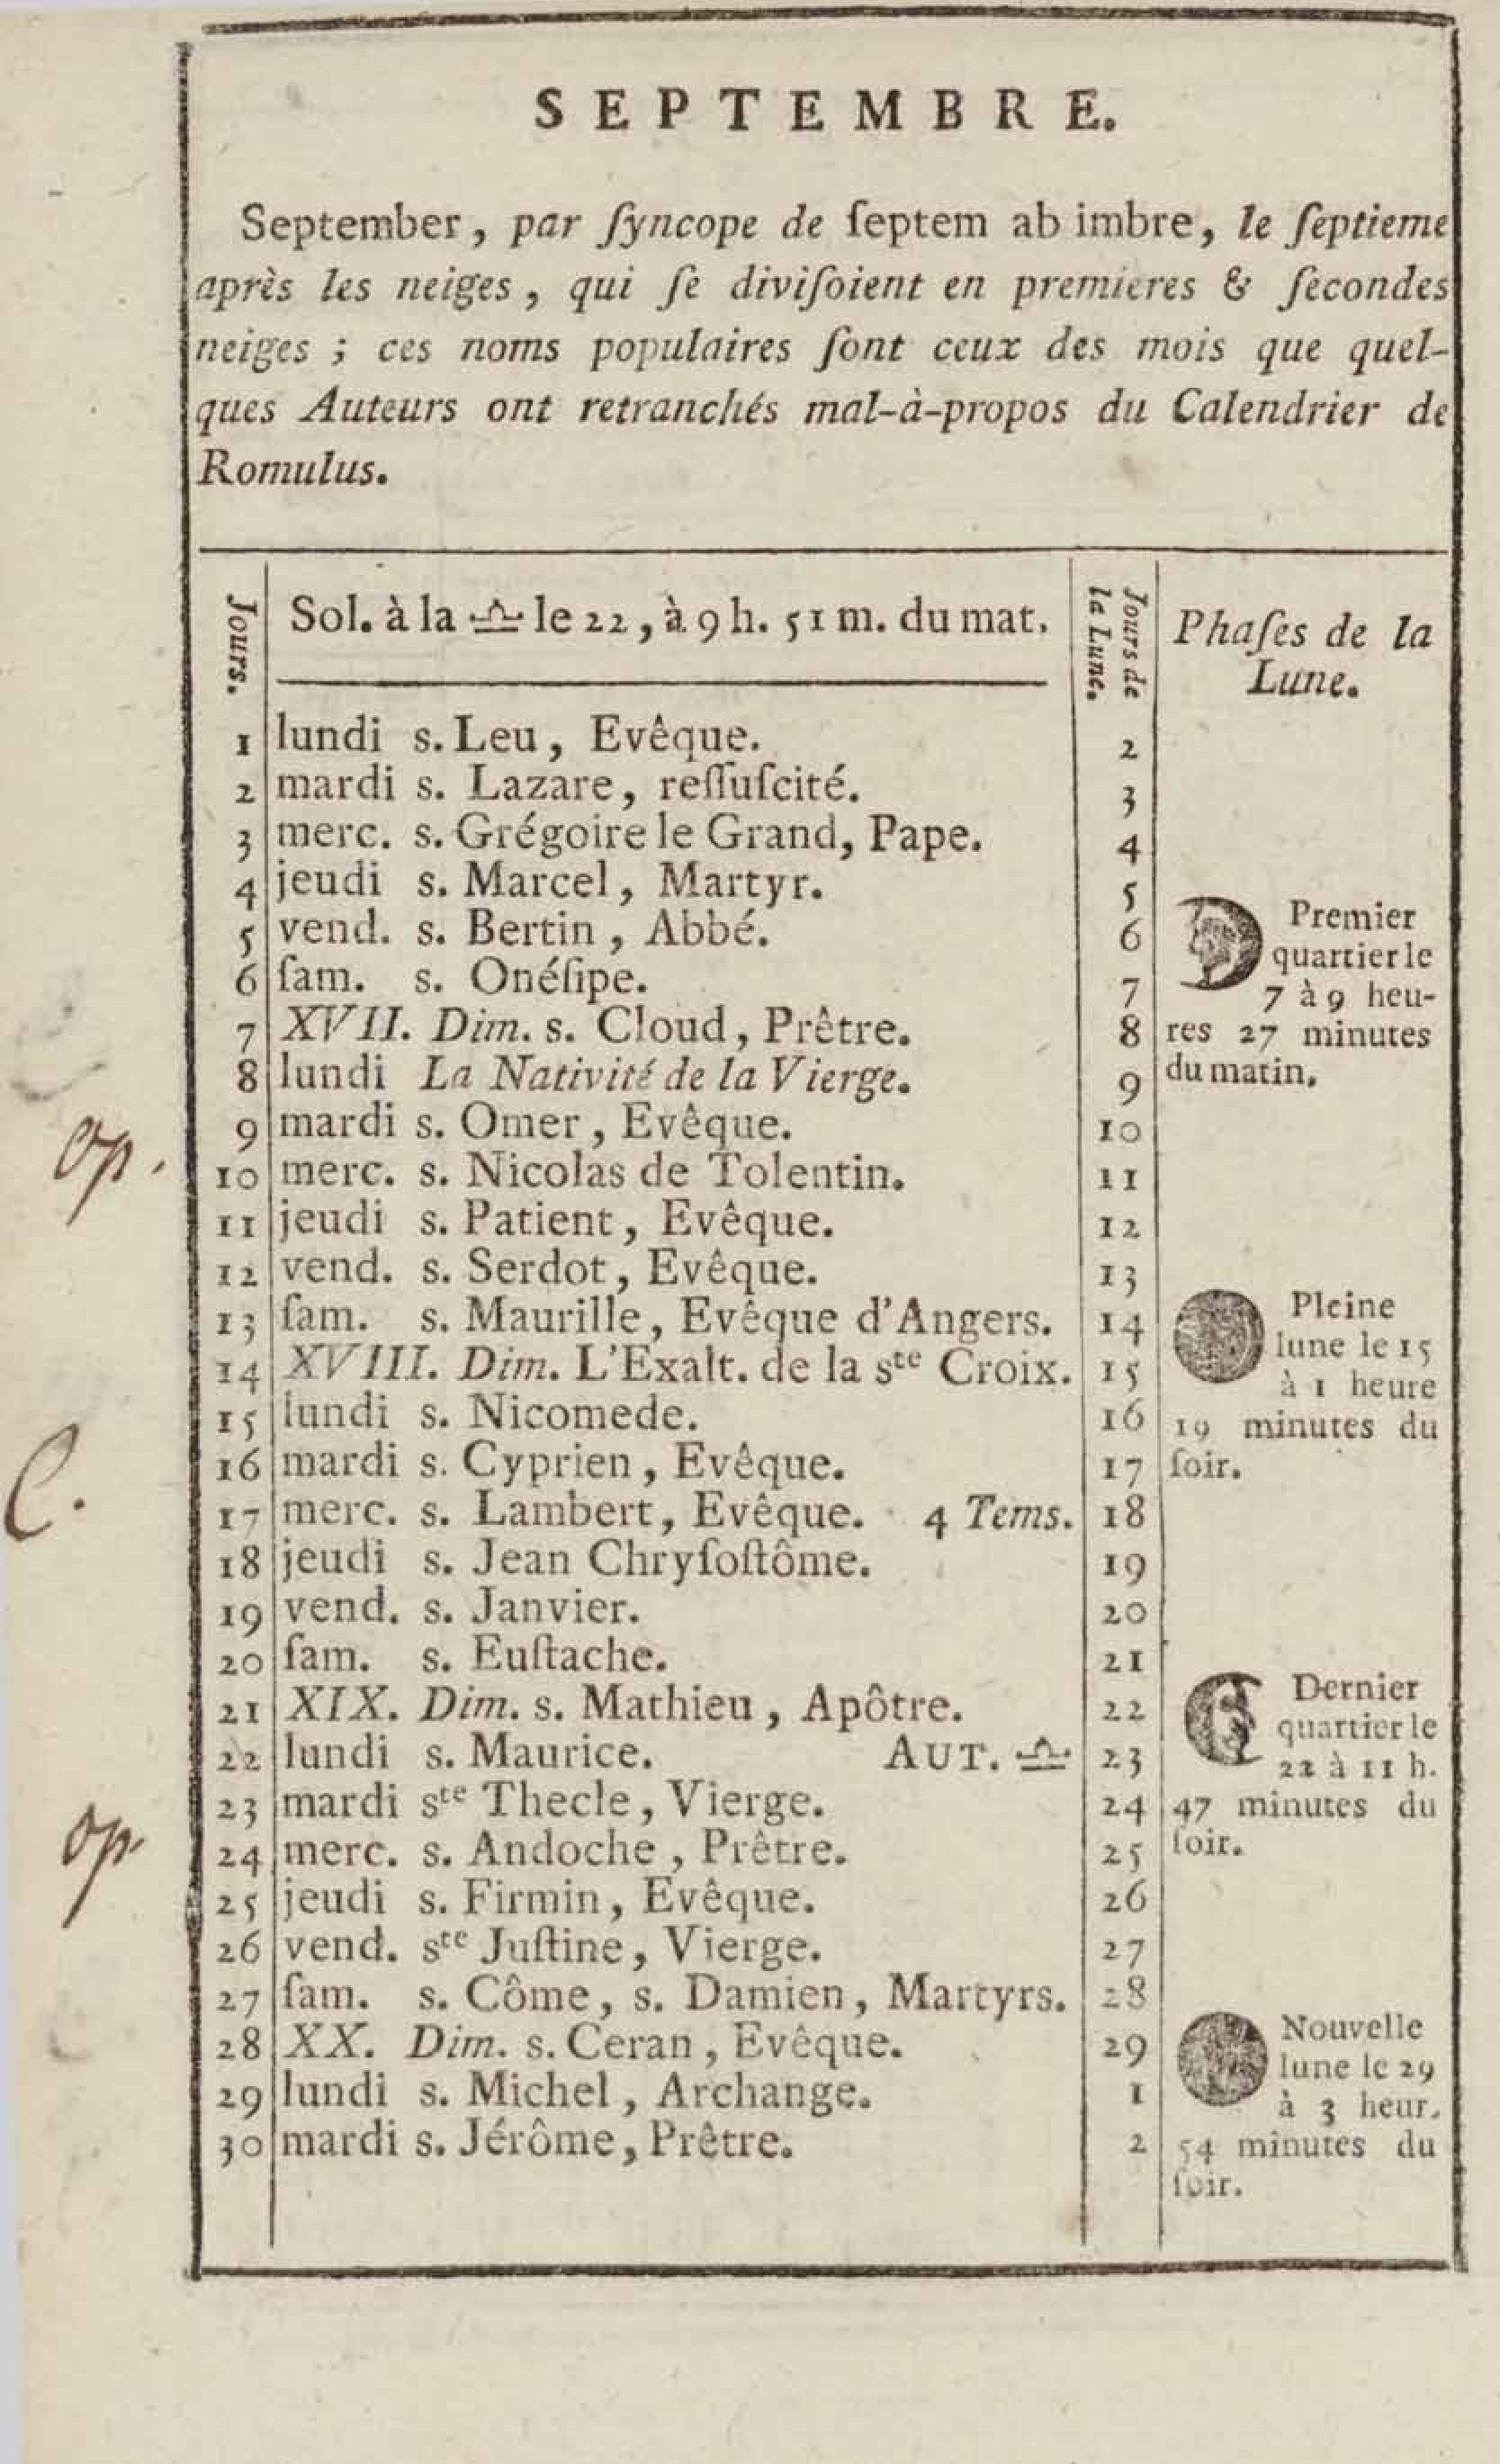 SEPTEMBRE.
September, par ſyncope de ſeptem ab imbre, le ſeptieme
après les neiges, qui ſe diviſoient en premieres & ſecondes
neiges ; ces noms populaires ſont ceux des mois que quel-
ques Auteurs ont retranchés mal-à-propos du Calendrier de
Romulus.
Jours.
Sol. à la ♎ le 22, à 9 h. 51 m. du mat.
Jours de
la Lune.
Phaſes de la
Lune.
1 lundi s. Leu, Evêque. 2
2 mardi s. Lazare, reſſuſcité. 3
3 merc. s. Grégoire le Grand, Pape. 4
4 jeudi s. Marcel, Martyr. 5
5 vend. s. Bertin, Abbé. 6
6 ſam. s. Onéſipe. 7
7 XVII. Dim. s. Cloud, Prêtre. 8
8 lundi La Nativité de la Vierge. 9
9 mardi s. Omer, Evêque. 10
10 merc. s. Nicolas de Tolentin. 11
11 jeudi s. Patient, Evêque. 12
12 vend. s. Serdot, Evêque. 13
13 ſam. s. Maurille, Evêque d'Angers. 14
14 XVIII. Dim. L'Exalt. de la ste Croix. 15
15 lundi s. Nicomede. 16
16 mardi s. Cyprien, Evêque. 17
17 merc. s. Lambert, Evêque. 4 Tems. 18
18 jeudi s. Jean Chryſoſtôme. 19
19 vend. s. Janvier. 20
20 ſam. s. Euſtache. 21
21 XIX. Dim. s. Mathieu, Apôtre. 22
22 lundi s. Maurice. AUT. ♎ 23
23 mardi ste Thecle, Vierge. 24
24 merc. s. Andoche, Prêtre. 25
25 jeudi s. Firmin, Evêque. 26
26 vend. ste Juſtine, Vierge. 27
27 ſam. s. Côme, s. Damien, Martyrs. 28
28 XX. Dim. s. Ceran, Evêque. 29
29 lundi s. Michel, Archange. 1
30 mardi s. Jérôme, Prêtre. 2
Premier
quartier le
7 à 9 heu-
res 27 minutes
du matin.
Pleine
lune le 15
à 1 heure
19 minutes du
ſoir.
Dernier
quartier le
22 à 11 h.
47 minutes du
ſoir.
Nouvelle
lune le 29
à 3 heur.
54 minutes du
ſoir.
op.
C.
op.